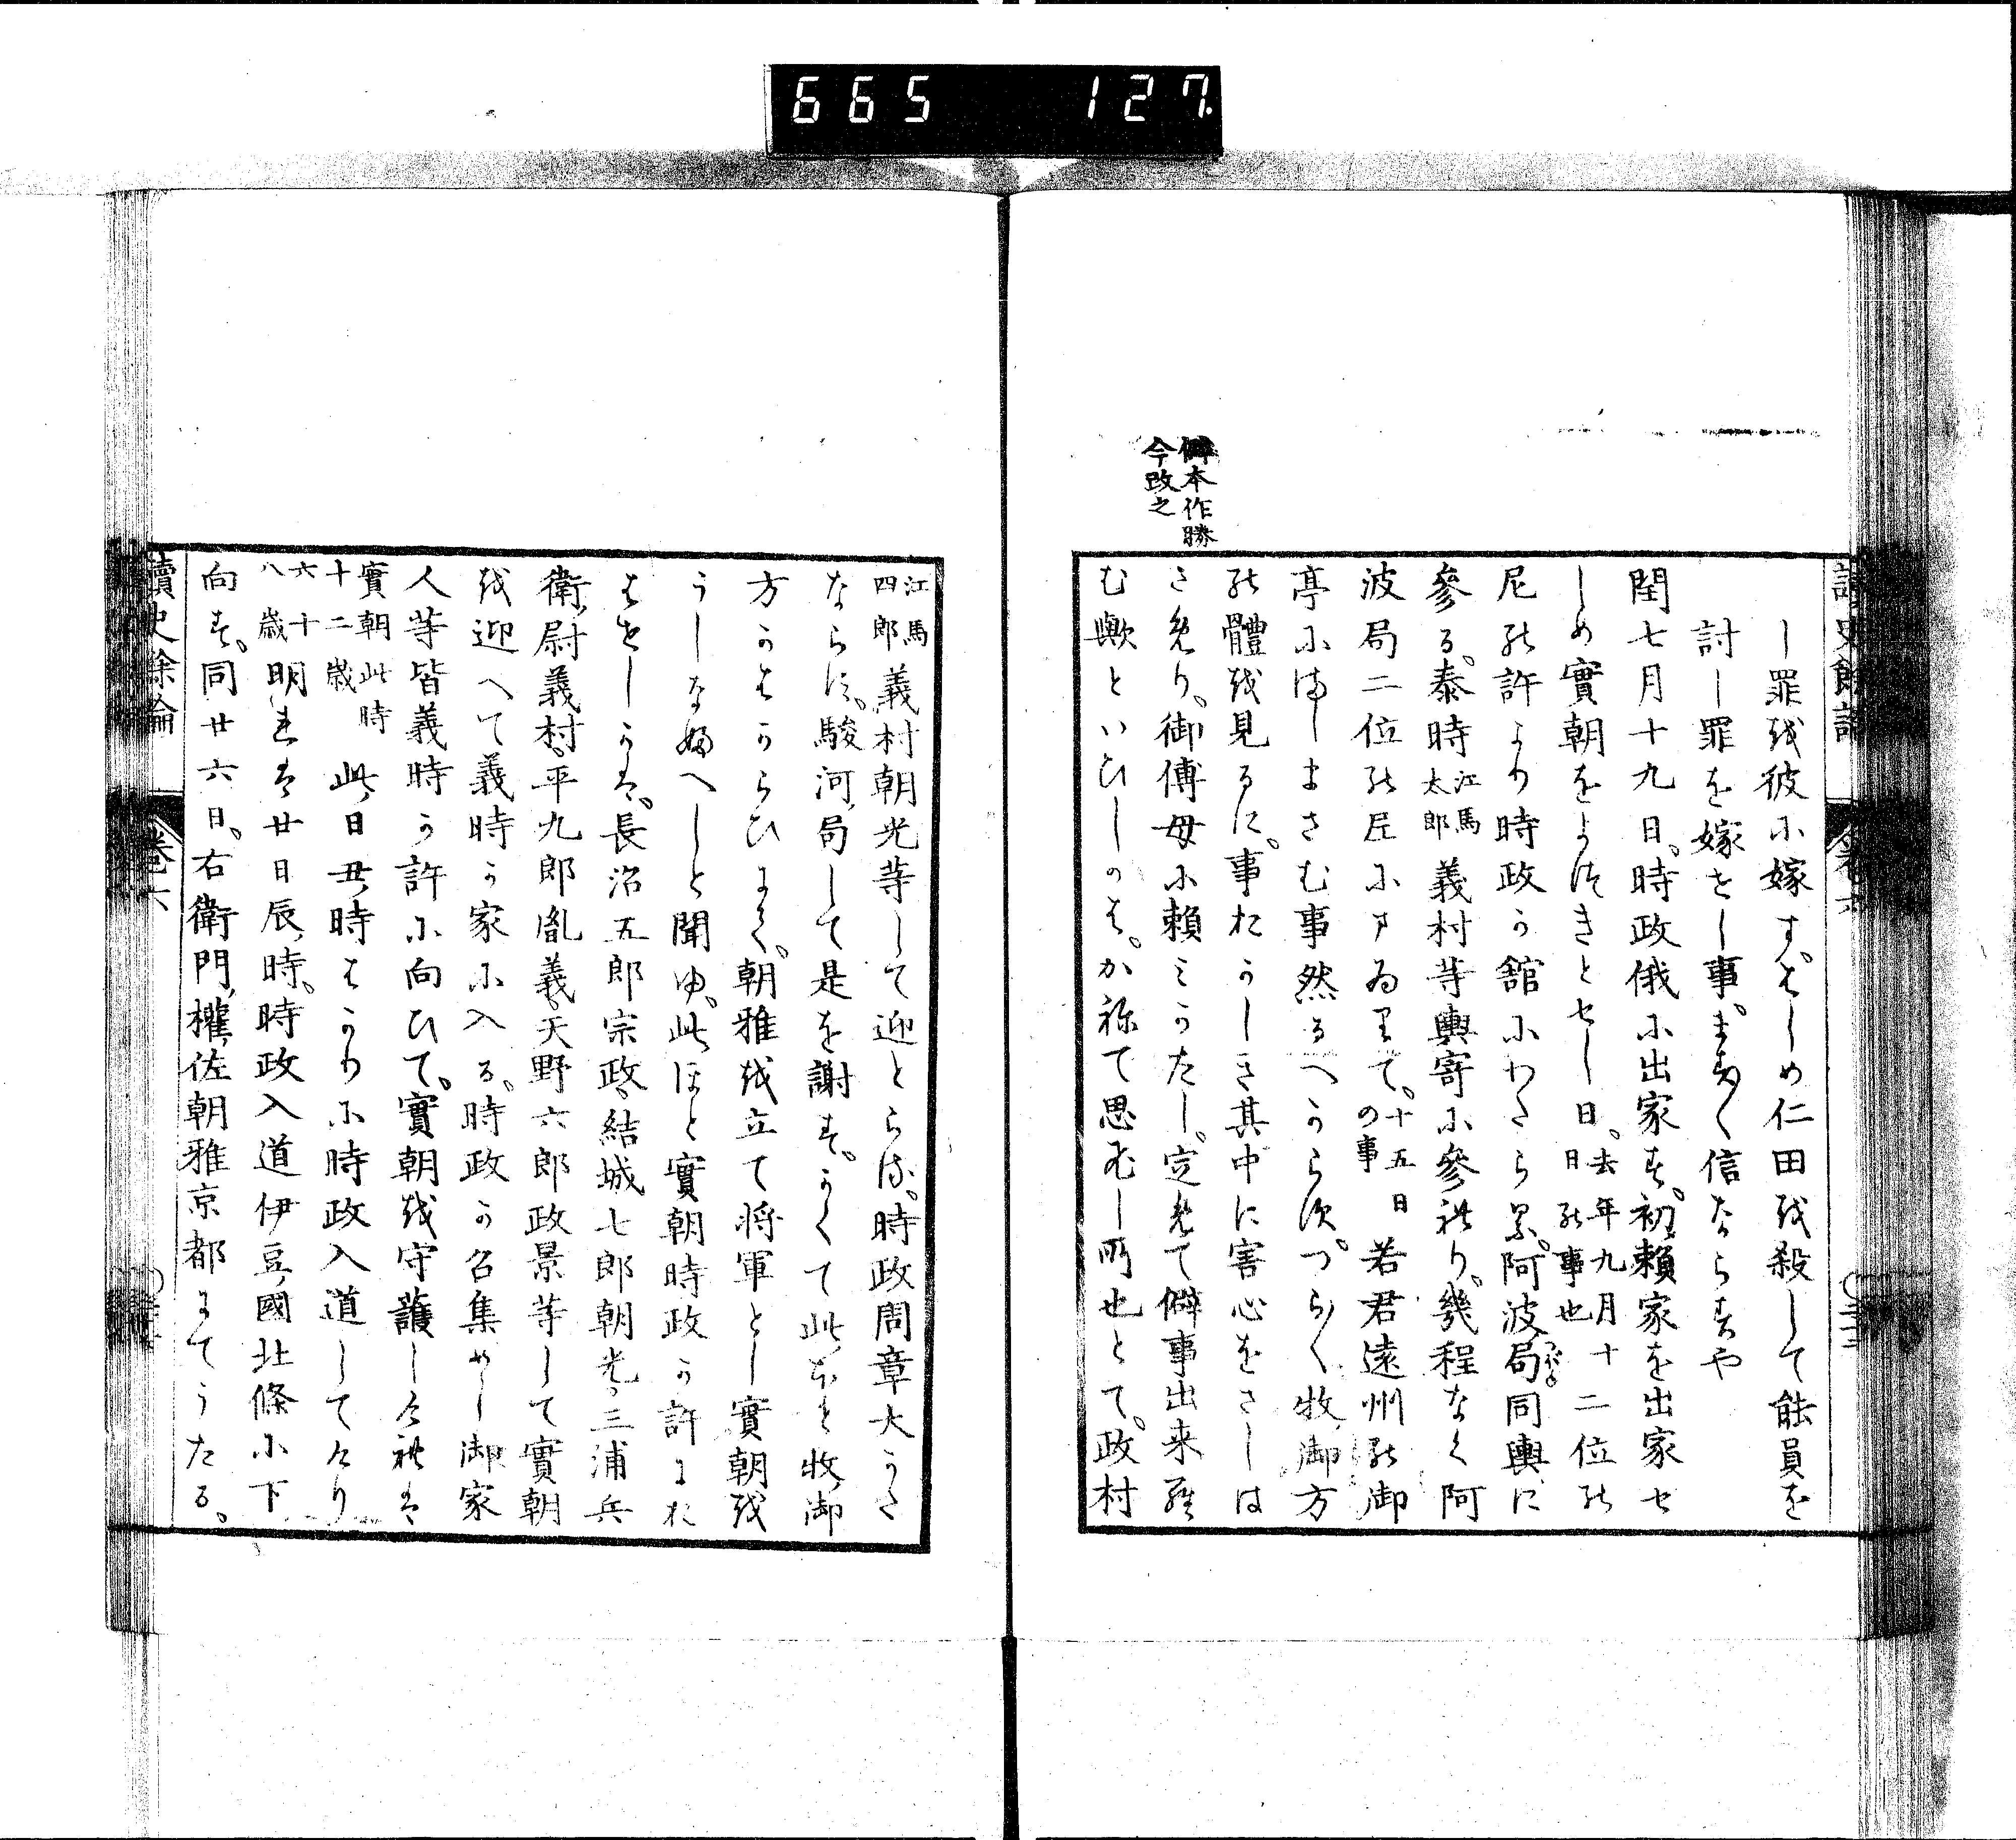 665 127
僻本作勝
今改之
讀史餘論 卷六
し罪を彼に嫁すはしめ仁田を殺して能員を
討し罪を嫁せし事まつたく信ならすや
閏七月十九日時政俄に出家す初頼家を出家せ
しめ實朝をよつきとせし日去年九月十二位の
日の事也
尼の許より時政か舘にわたらる阿波局同輿に
參る泰時江馬太郎義村等輿寄に參れり幾程なく阿
波局二位の尼にまゐりて十五日の事若君遠州の御
亭にましまさむ事然るへからすつら〳〵牧御方
の體を見るに事おかしき其中に害心をさしは
さめり御傅母に頼みかたし定めて僻事出来ら
む歟といひしかはかねて思ひし所也とて政村
江馬四郎義村朝光等して迎とらる時政周章大かた
ならす駿河局して是を謝すかくて此ほと牧御
方かはからひにて朝雅を立て将軍とし實朝を
うしなふへしと聞ゆ此ほと實朝時政か許にお
はせしかは長沼五郎宗政結城七郎朝光三浦兵
衛尉義村平九郎胤義天野六郎政景等して實朝
を迎へて義時か家に入る時政か召集めし御家
人等皆義時か許に向ひて實朝を守護しけれは
實朝此時十二歳此日丑時はかりに時政入道してけり
六十八歳明れは廿日辰時時政入道伊豆國北條に下
向す同廿六日右衛門權佐朝雅京都にてうたる
讀史餘論 卷六